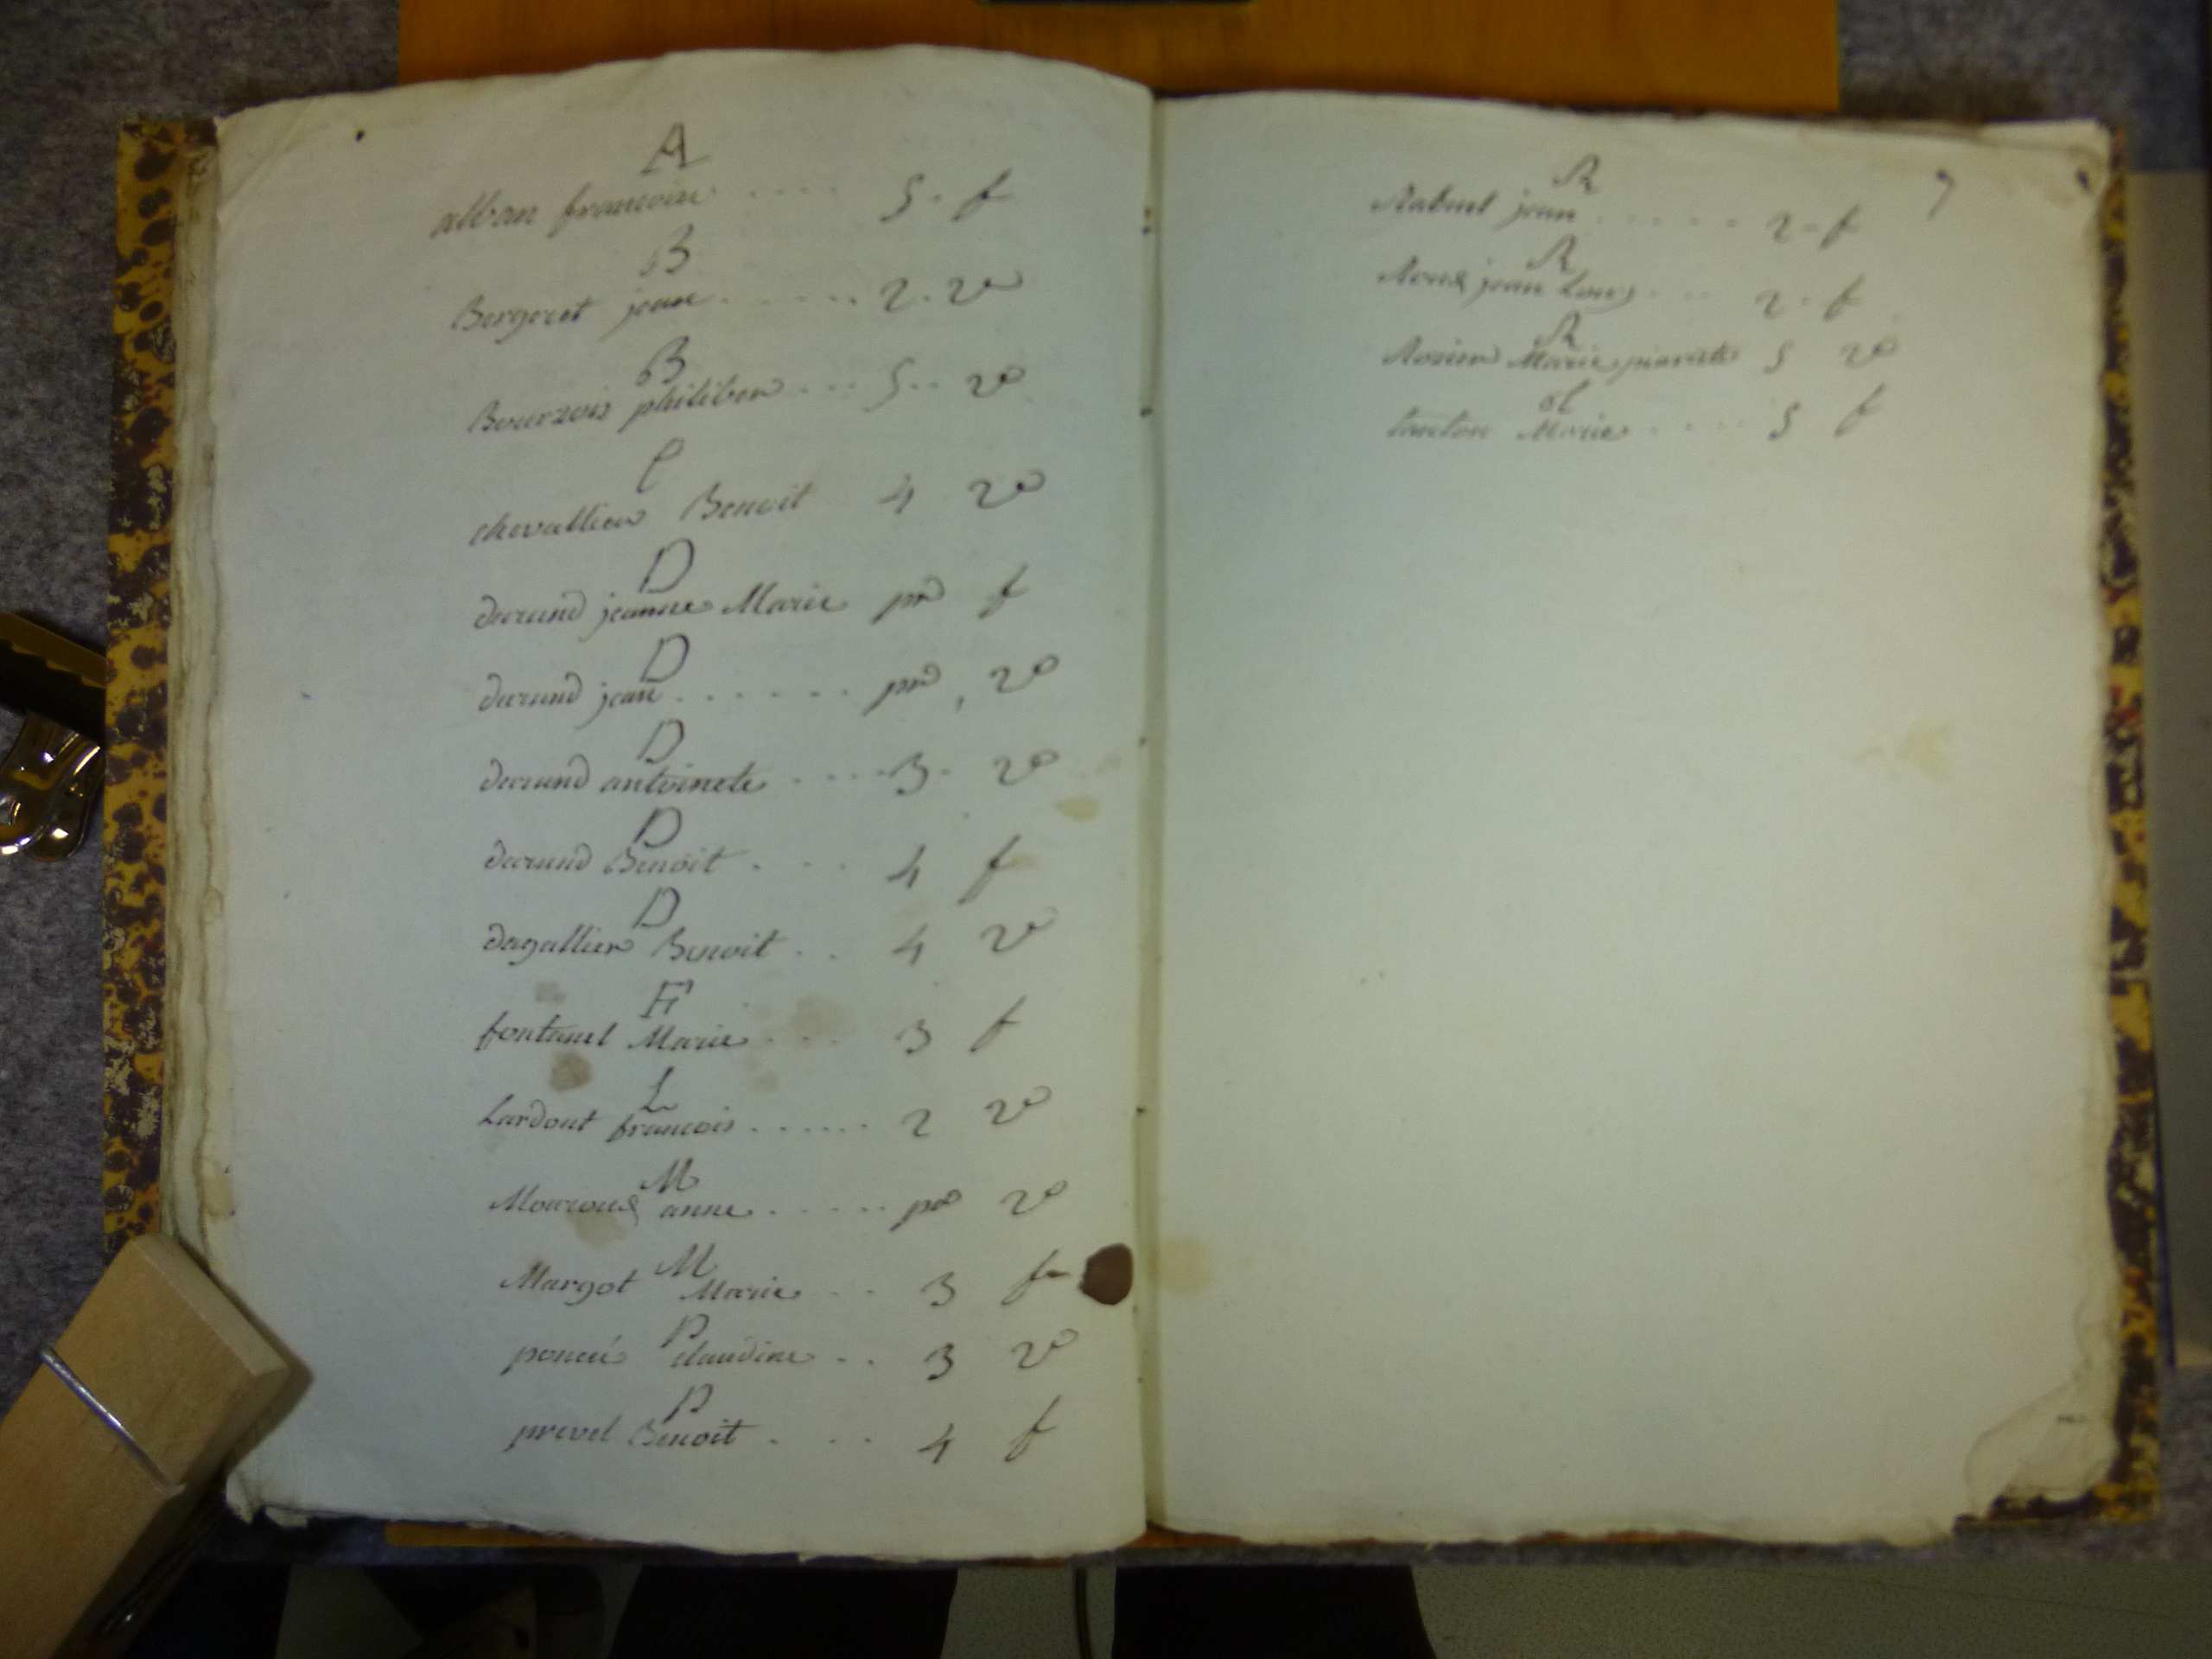 A
alban francois .... 5. f
B
Bergeret jean ...... 2. 2º
B
Bourgois philiber ... 5.. 2º
C
chevallier Benoit 4 2º
D
durand jeanne Marie pr f
D
durand jean ....... pr, 2º
D
durand antoinete .... 3. 2º
D
durand Benoit .... 4 f
D
dagallier Benoit .. 4 2º
F
fontanel Marie ... 3 f
L
Lardout francois ...... 2 2º
M
Mouroux anne ...... pr 2º
M
Margot Marie .. 3 f
P
poncié claudine .. 3 2º
P
prevel Benoit . .. 4 f
7
R
Rabuel jean ..... 2 - f
R
Roux jean Louis ... 2 - f
R
Rosier Marie pierrette 5 2º
t
tanton Marie .... 5 f